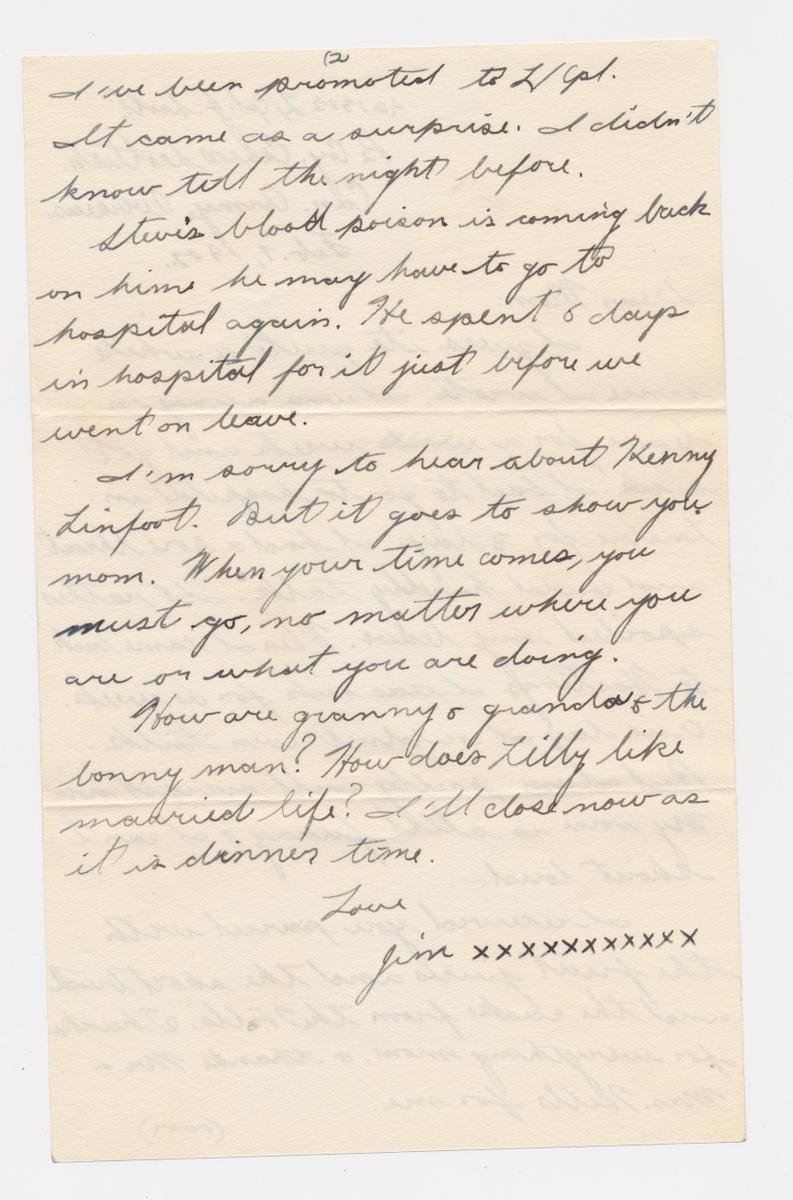 (2
I've been promoted to L/Cpl.
It came as a surprise. I didn't
know till the night before.
Stevie's blood poison is coming back
on him & he may have to go to
hospital again. He spent 6 days
in hospital for it just before we
went on leave.
I'm sorry to hear about Kenny
Linfoot. But it goes to show you
mom. When your time comes, you
must go, no matter where you
are or what you are doing.
How are granny & granda & the
bonny man? How does Lilly like
married life? I'll close now as
it is dinner time.
Love
Jim xxxxxxxxxxx